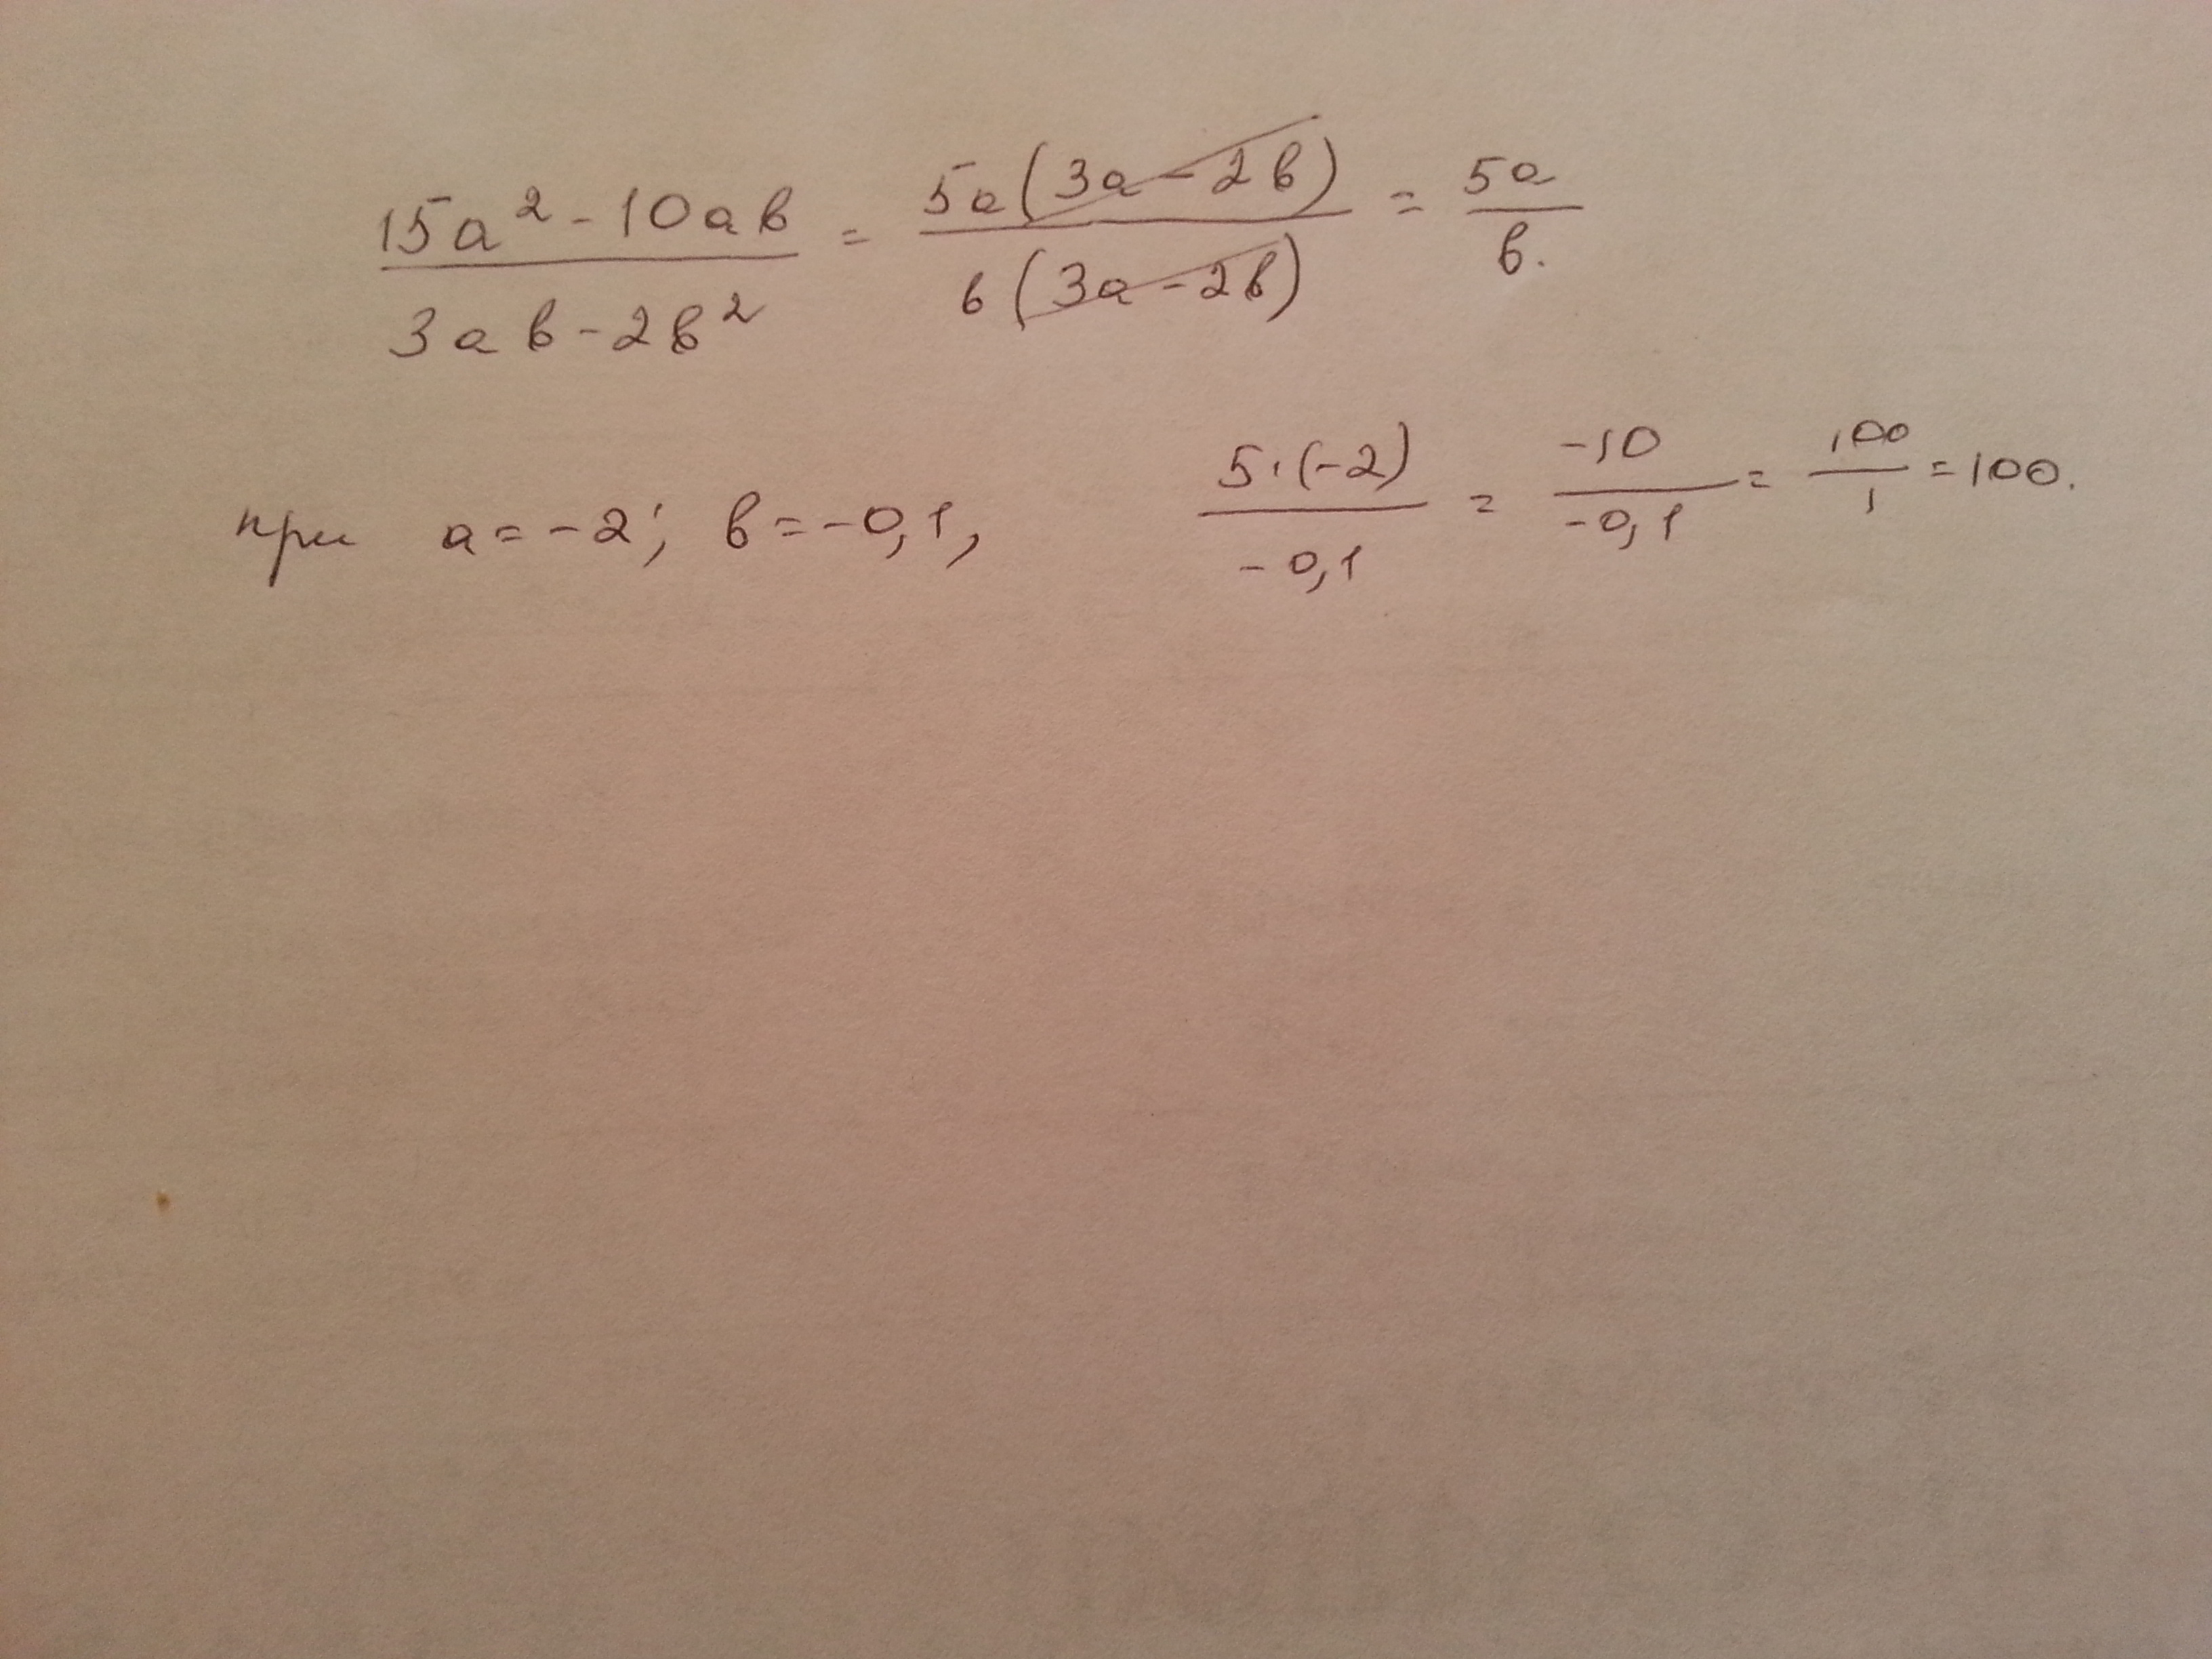 15a² - 10ab / 3ab - 2b² = 5a(3a - 2b) / b(3a - 2b) = 5a / b.
при a = -2; b = -0,1, 5·(-2) / -0,1 = -10 / -0,1 = 100 / 1 = 100.